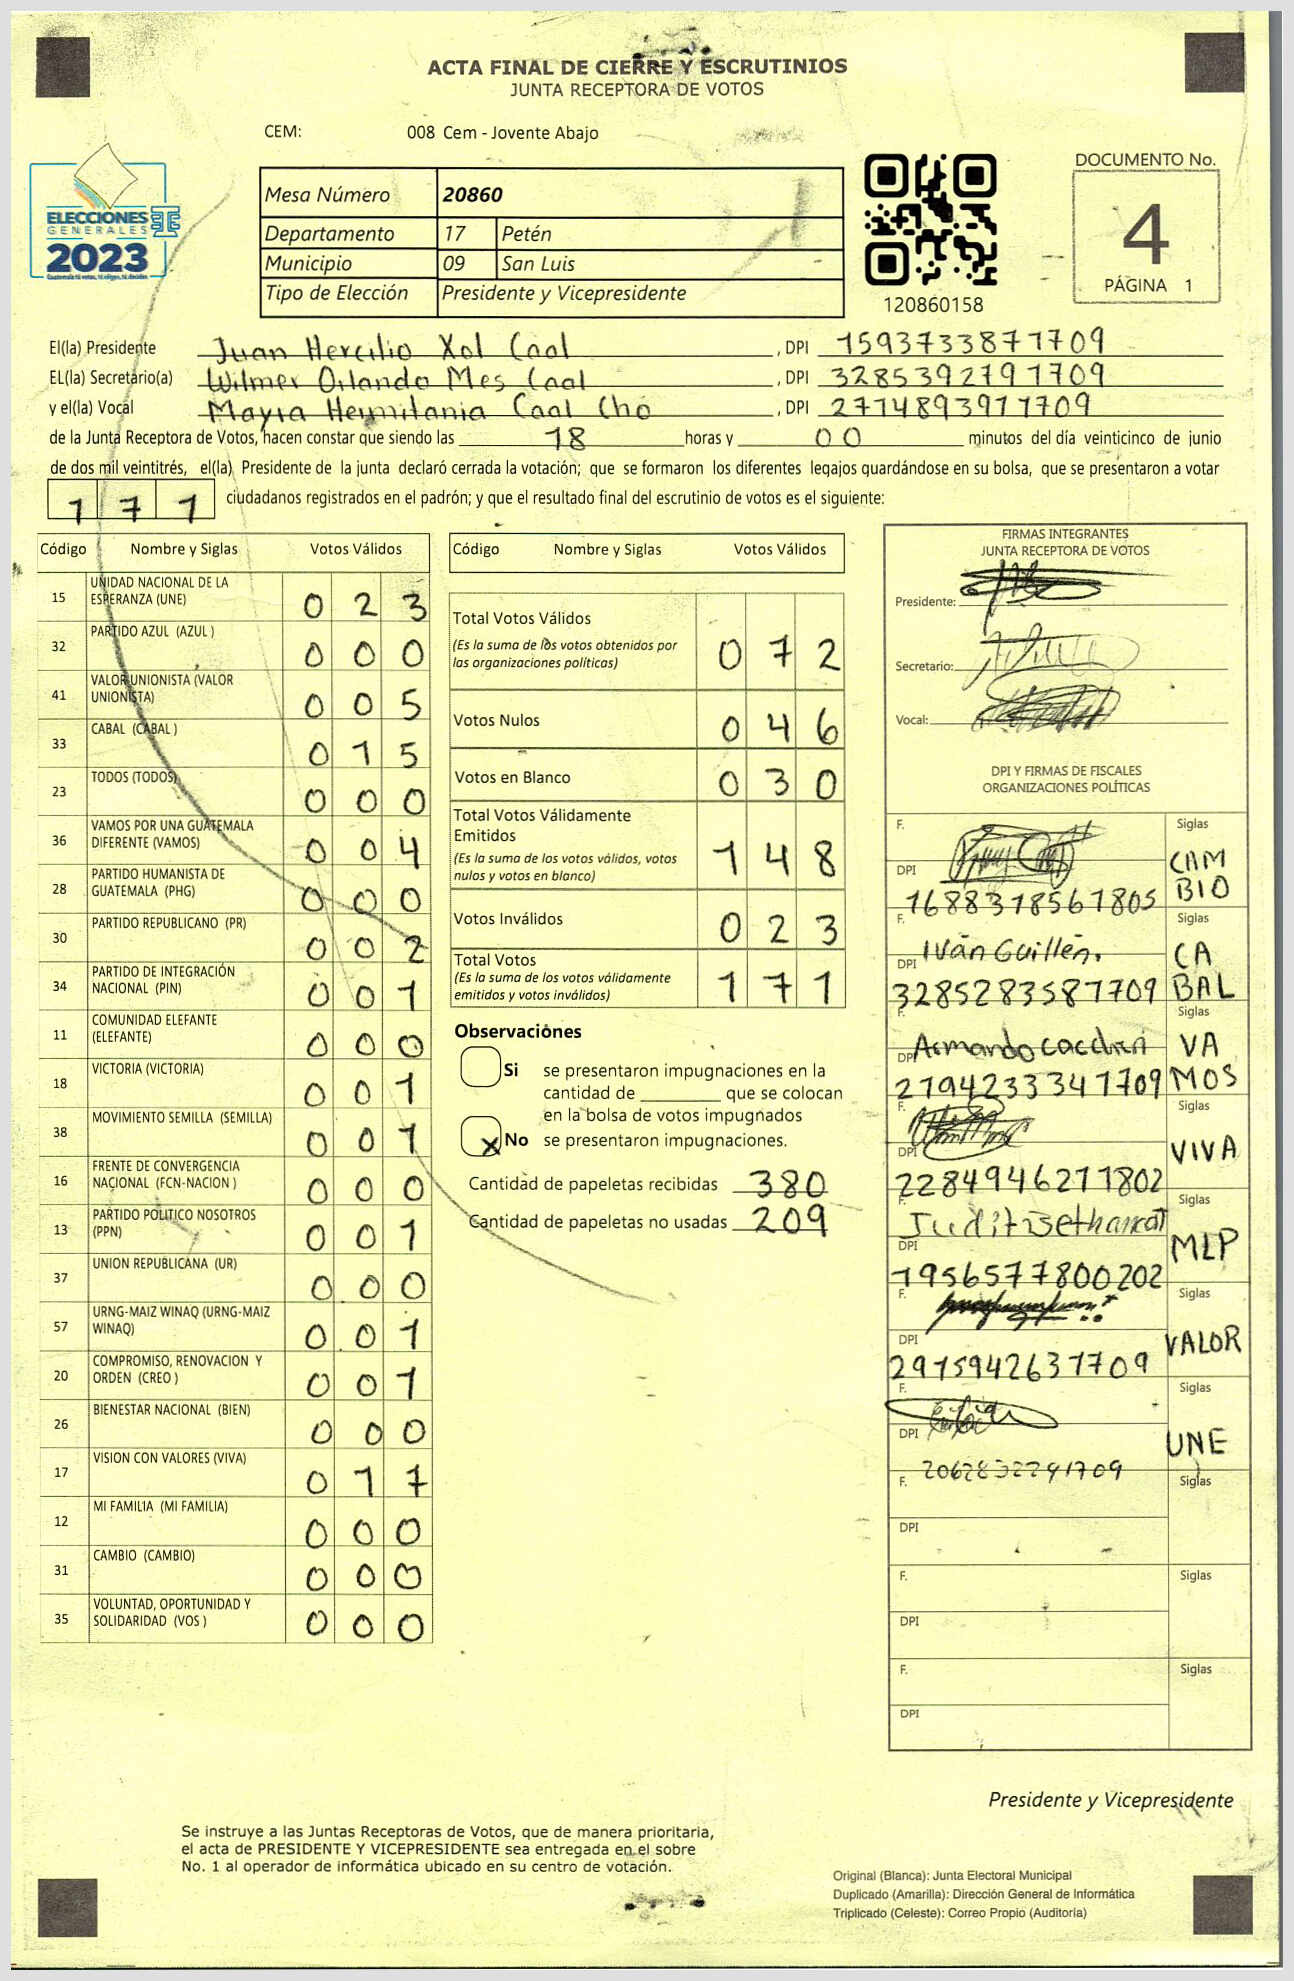 ACTA FINAL DE CIERRE Y ESCRUTINIOS
JUNTA RECEPTORA DE VOTOS
CEM: 008 Cem - Jovente Abajo
ELECCIONES
GENERALES
2023
Mesa Número 20860
Departamento 17 Petén
Municipio 09 San Luis
Tipo de Elección Presidente y Vicepresidente
120860158
DOCUMENTO No.
4
PÁGINA 1
El(la) Presidente Juan Hercilio Xol Caal , DPI 1593733871709
EL(la) Secretario(a) Wilmer Orlando Mes Caal , DPI 3285392791709
y el(la) Vocal Mayra Hermitania Caal Cho , DPI 2714893911709
de la Junta Receptora de Votos, hacen constar que siendo las 18 horas y 00 minutos del día veinticinco de junio
de dos mil veintitrés, el(la) Presidente de la junta declaró cerrada la votación; que se formaron los diferentes legajos quardándose en su bolsa, que se presentaron a votar
171 ciudadanos registrados en el padrón; y que el resultado final del escrutinio de votos es el siguiente:
Código Nombre y Siglas Votos Válidos
15 UNIDAD NACIONAL DE LA ESPERANZA (UNE) 0 2 3
32 PARTIDO AZUL (AZUL ) 0 0 0
41 VALOR UNIONISTA (VALOR UNIONISTA) 0 0 5
33 CABAL (CABAL ) 0 1 5
23 TODOS (TODOS) 0 0 0
36 VAMOS POR UNA GUATEMALA DIFERENTE (VAMOS) 0 0 4
28 PARTIDO HUMANISTA DE GUATEMALA (PHG) 0 0 0
30 PARTIDO REPUBLICANO (PR) 0 0 2
34 PARTIDO DE INTEGRACIÓN NACIONAL (PIN) 0 0 1
11 COMUNIDAD ELEFANTE (ELEFANTE) 0 0 0
18 VICTORIA (VICTORIA) 0 0 1
38 MOVIMIENTO SEMILLA (SEMILLA) 0 0 1
16 FRENTE DE CONVERGENCIA NACIONAL (FCN-NACION ) 0 0 0
13 PARTIDO POLITICO NOSOTROS (PPN) 0 0 1
37 UNION REPUBLICANA (UR) 0 0 0
57 URNG-MAIZ WINAQ (URNG-MAIZ WINAQ) 0 0 1
20 COMPROMISO, RENOVACION Y ORDEN (CREO ) 0 0 1
26 BIENESTAR NACIONAL (BIEN) 0 0 0
17 VISION CON VALORES (VIVA) 0 1 7
12 MI FAMILIA (MI FAMILIA) 0 0 0
31 CAMBIO (CAMBIO) 0 0 0
35 VOLUNTAD, OPORTUNIDAD Y SOLIDARIDAD (VOS ) 0 0 0
Código Nombre y Siglas Votos Válidos
Total Votos Válidos
(Es la suma de los votos obtenidos por
las organizaciones políticas) 0 7 2
Votos Nulos 0 4 6
Votos en Blanco 0 3 0
Total Votos Válidamente
Emitidos
(Es la suma de los votos válidos, votos
nulos y votos en blanco) 1 4 8
Votos Inválidos 0 2 3
Total Votos
(Es la suma de los votos válidamente
emitidos y votos inválidos) 1 7 1
Observaciónes
Si se presentaron impugnaciones en la
cantidad de ________ que se colocan
en la bolsa de votos impugnados
x No se presentaron impugnaciones.
Cantidad de papeletas recibidas 380
Cantidad de papeletas no usadas 209
FIRMAS INTEGRANTES
JUNTA RECEPTORA DE VOTOS
Presidente:
Secretario:
Vocal:
DPI Y FIRMAS DE FISCALES
ORGANIZACIONES POLÍTICAS
F. Siglas
DPI 1688318561805 CAMBIO
F. Iván Guillén. Siglas
DPI 3285283581709 CABAL
F. Armando Siglas
DPI 2794233341709 VAMOS
F. Siglas
DPI 2284946211802 VIVA
F. Siglas
DPI 1956577800202 MLP
F. Siglas
DPI 2915942631709 VALOR
F. Siglas
DPI UNE
F. Siglas
DPI
F. Siglas
DPI
F. Siglas
DPI
Presidente y Vicepresidente
Se instruye a las Juntas Receptoras de Votos, que de manera prioritaria,
el acta de PRESIDENTE Y VICEPRESIDENTE sea entregada en el sobre
No. 1 al operador de informática ubicado en su centro de votación.
Original (Blanca): Junta Electoral Municipal
Duplicado (Amarilla): Dirección General de Informática
Triplicado (Celeste): Correo Propio (Auditoría)